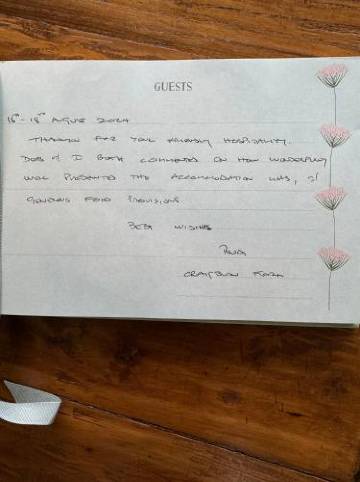 GUESTS
16th - 18th AUGUST 2024
THANKYOU FOR YOUR HOSPITALITY.
& I BOTH COMMENTED ON HOW WONDERFULLY
WELL PRESENTED THE ACCOMMODATION WAS, &
GENEROUS FOOD PROVISIONS
BEST WISHES